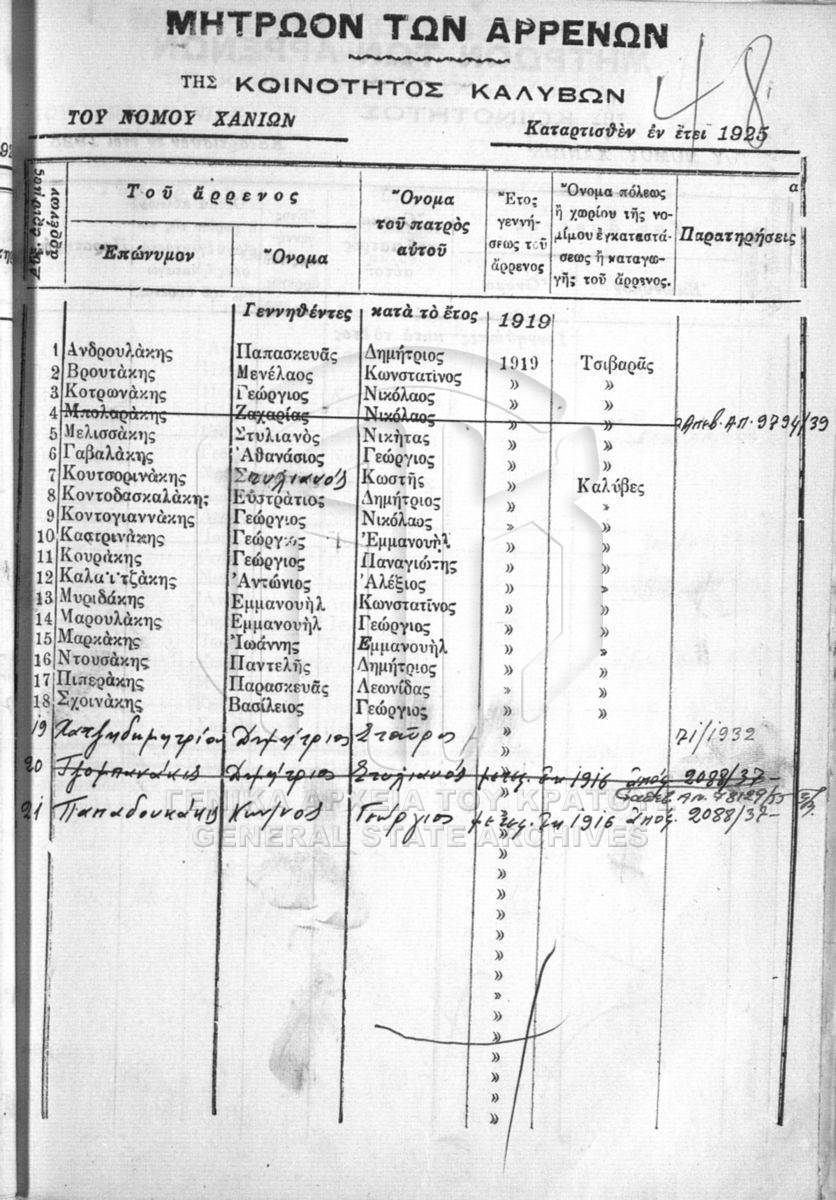 ΜΗΤΡΩΟΝ ΤΩΝ ΑΡΡΕΝΩΝ
ΤΗΣ ΚΟΙΝΟΤΗΤΟΣ ΚΑΛΥΒΩΝ
48
ΤΟΥ ΝΟΜΟΥ ΧΑΝΙΩΝ
Καταρτισθὲν ἐν ἔτει 1925
α
Τοῦ ἄρρενος
Ἐπώνυμον Ὄνομα
Ὄνομα τοῦ πατρὸς αὐτοῦ
Ἔτος γεννή- σεως τοῦ ἄρρενος
Ὄνομα πόλεως ἢ χωρίου τῆς νο- μίμου ἐγκαταστά- σεως ἢ καταγω- γῆς τοῦ ἄρρενος.
Παρατηρήσεις
Γεννηθέντες κατὰ τὸ ἔτος 1919
1 Ἀνδρουλάκης Παπασκευᾶς Δημήτριος 1919 Τσιβαρᾶς
2 Βρουτάκης Μενέλαος Κωνστατῖνος » »
3 Κοτρωνάκης Γεώργιος Νικόλαος » »
4 Μπολαράκης Ζαχαρίας Νικόλαος » » Ἀπεβ. ΑΠ. 9794/39
5 Μελισσάκης Στυλιανὸς Νικήτας » »
6 Γαβαλάκης Ἀθανάσιος Γεώργιος » »
7 Κουτσορινάκης Στυλιανός Κωστῆς » Καλύβες
8 Κοντοδασκαλάκης Εὐστράτιος Δημήτριος » »
9 Κοντογιαννάκης Γεώργιος Νικόλαος » »
10 Καστρινάκης Γεώργιος Ἐμμανουὴλ » »
11 Κουράκης Γεώργιος Παναγιώτης » »
12 Καλαϊτζάκης Ἀντώνιος Ἀλέξιος » »
13 Μυριδάκης Εμμανουὴλ Κωνστατῖνος » »
14 Μαρουλάκης Εμμανουὴλ Γεώργιος » »
15 Μαρκάκης Ἰωάννης Εμμανουὴλ » »
16 Ντουσάκης Παντελῆς Δημήτριος » »
17 Πιπεράκης Παρασκευᾶς Λεωνίδας » »
18 Σχοινάκης Βασίλειος Γεώργιος » »
19 Χατζηδημητρίου Δημήτριος Σταῦρος » 71/1932
20 Δημήτριος Στυλιανός 1916 ἀπός 2088/37-
21 Παπαδουκάκις Κων/νος Γεώργιος 1916 ἀπός. 2088/37-
ΓΕΝΙΚΑ ΑΡΧΕΙΑ ΤΟΥ ΚΡΑΤΟΥΣ
GENERAL STATE ARCHIVES
»
»
»
»
»
»
»
»
»
»
»
»
»
»